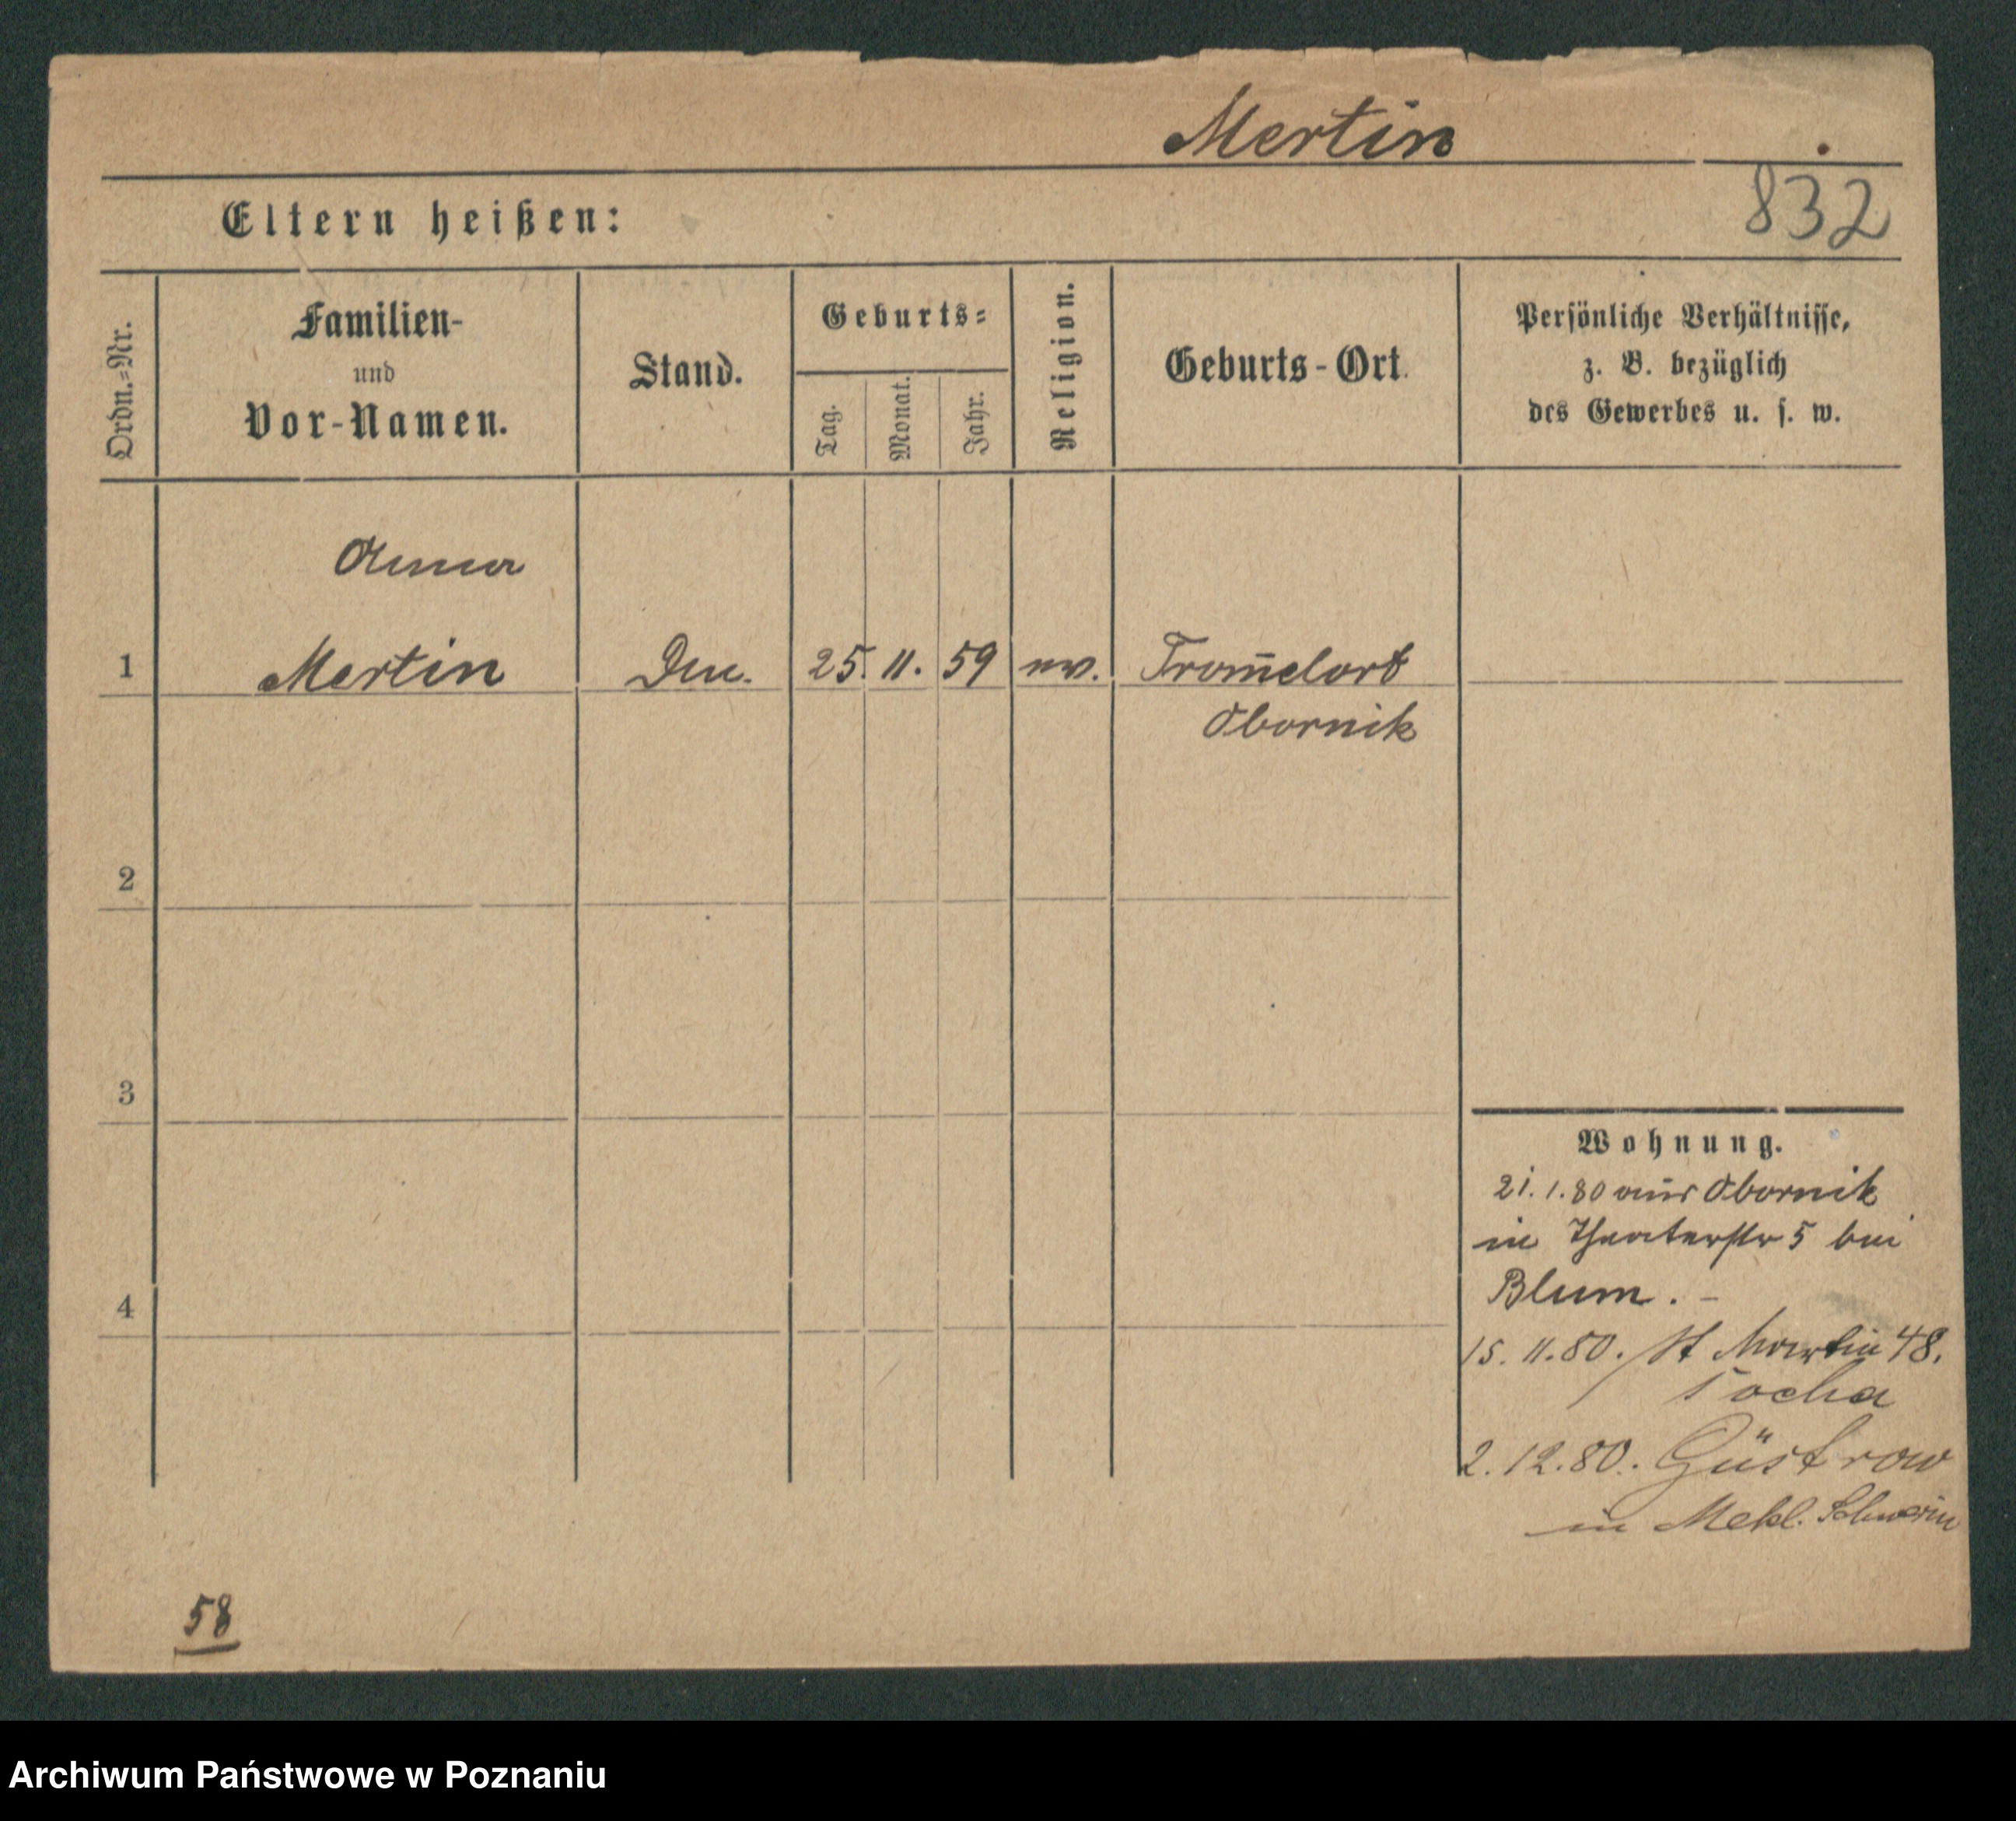 Mertin
832
Eltern heißen:
Ordn.=Nr.
Familien-
und
Vor-Namen.
Stand.
Geburts=
Tag.
Monat.
Jahr.
Religion.
Geburts-Ort.
Persönliche Verhältnisse,
z. B. bezüglich
des Gewerbes u. s. w.
Anna
1 Mertin 25. 11. 59 ev. Trom̄elort
Obornik
2
3
4
Wohnung.
21. 1. 80 aus Obornik
in Theaterstr 5 bei
Blum. -
15. 11. 80. St Martin 48.
Tocha
2. 12. 80. Güstrow
in Mekl. Schwerin
58
Archiwum Państwowe w Poznaniu